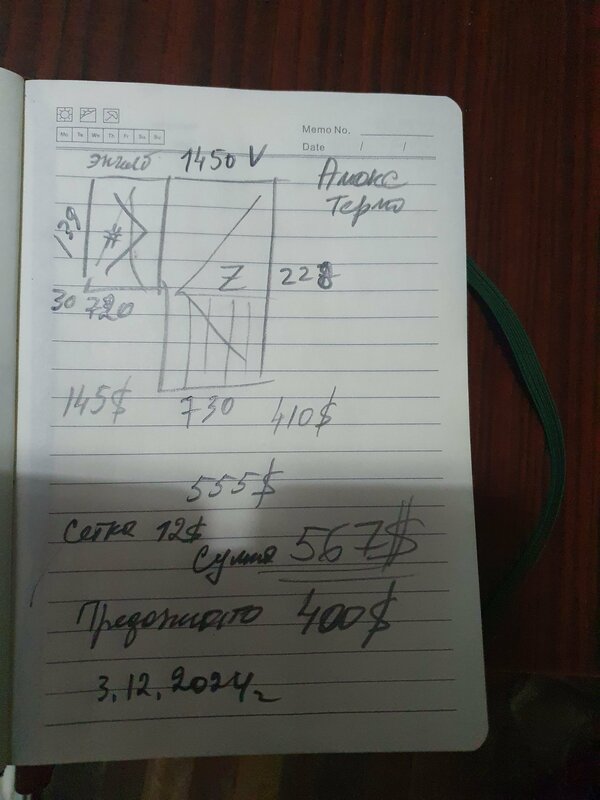 Memo No.
Mo Tu We Th Fr Sa Su
Date / /
1450 V
Амокс
Термо
139
#
Z
30 720
145$ 730 410$
555$
Сетка 12$
Сумма 567$
400$
3.12.2024г